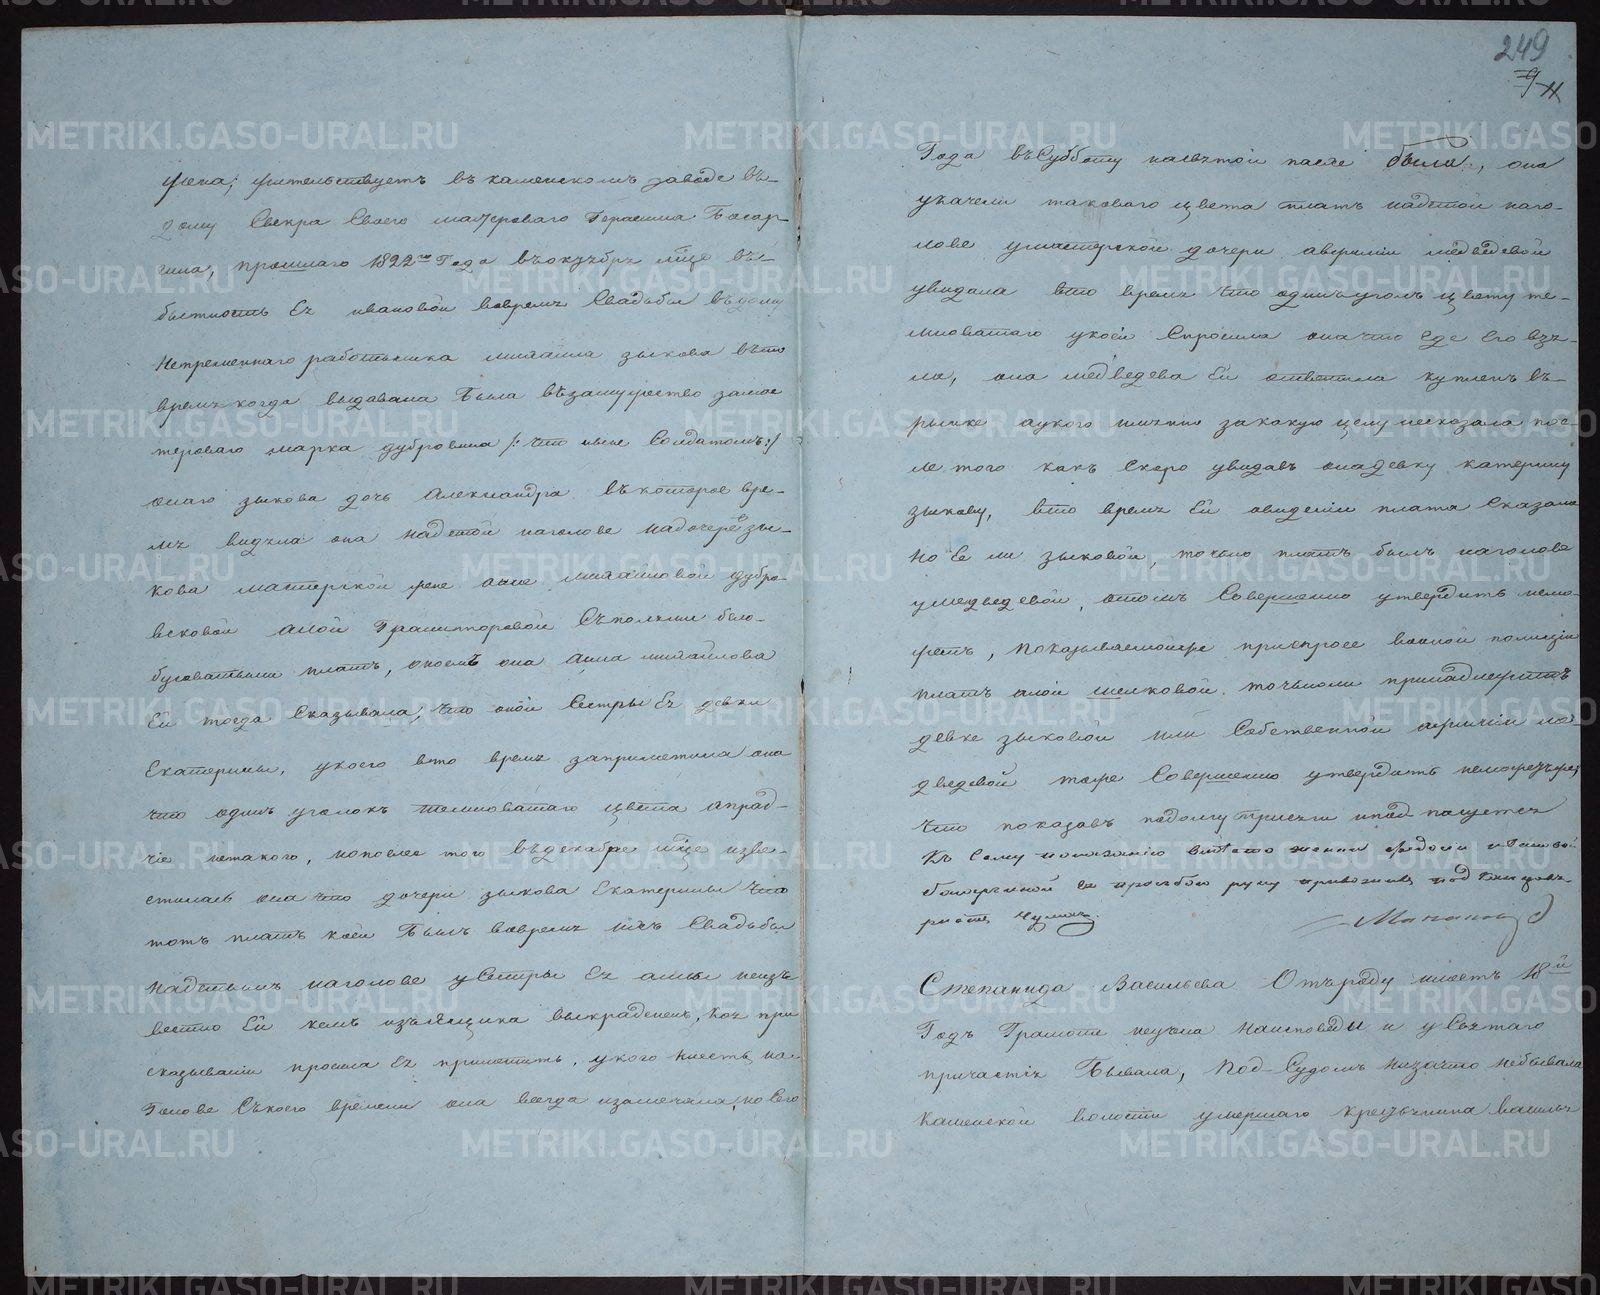 жена; жительствуетъ въ каменскомъ заводе въ-
дому Свекра Своего мастероваго Герасима Басар-
гина, прошлаго 1822го Года въоктябре мце въ-
бытность Ея ивановой вовремя Свадьбы въдому
Непременнаго работника михаила зыкова вто
время когда выдавана Была възамужество замас
тероваго марка дубровина /: что ныне Солдатомъ :/
онаго зыкова дочь Александра въкоторое вре-
мя видела она надетой наголове надочере зы-
кова мастерской жене анне михайловой дубро-
алой Съполыми бело-
платъ, окоемъ она Анна михайлова
Ей тогда Сказывала, что оной Сестры Ея девки
Екатерины, укоего вто время заприметила она
что одинъ уголокъ темноватаго цвета апрот-
чіе нетакого, нопосле того въдекабре мце изве-
стилась она что дочери зыкова Екатерины что
тотъ платъ коей Былъ вовремя ихъ Свадьбы
надетымъ наголове уСестры Ея анны неизъ
вестно Ей кемъ изъящика выкраденъ, Коя при
сказываніи просила Ея приметить, укого имеетъ на
Голове Съкоего времени она всегда изамечала, но Сего
249
Года въСубботу насвятой пасхе была, она
таковаго цвета платъ надетой наго-
лове умастерской дочери медведевой
увидала вто время что одинъ уголъ цвету те-
мноватаго укоей Спросила она что где Его взя-
ла, она медведева Ей ответила купленъ въ-
рынке аукого именно закакую цену несказала пос-
ле того какъ Скоро увидавъ онадевку катерину
зыкову, вто время Ей овиденіи плата Сказано
но Ее ли зыковой, точно платъ былъ наголове
умедведевой, отомъ Совершенно утвердить немо-
жетъ, показываемойже приспросе воной полиціи
платъ алой шелковой точноли принадлежитъ
девке зыковой или Собственной ме-
дведевой тоже Совершенно утвердить неможетъже;
что показавъ подолгу присяги иподпишется
Къ Сему показанію вместо женки Федосьи ивановой
басаргиной ея прозбою руку приложилъ
Степанида Васильева Отъроду имеетъ 18й
Годъ Грамоти неучена Наисповеди и уСвятаго
причастія Бывала, Под-Судомъ низачто небывала
каменской волости умершаго крестьянина василья